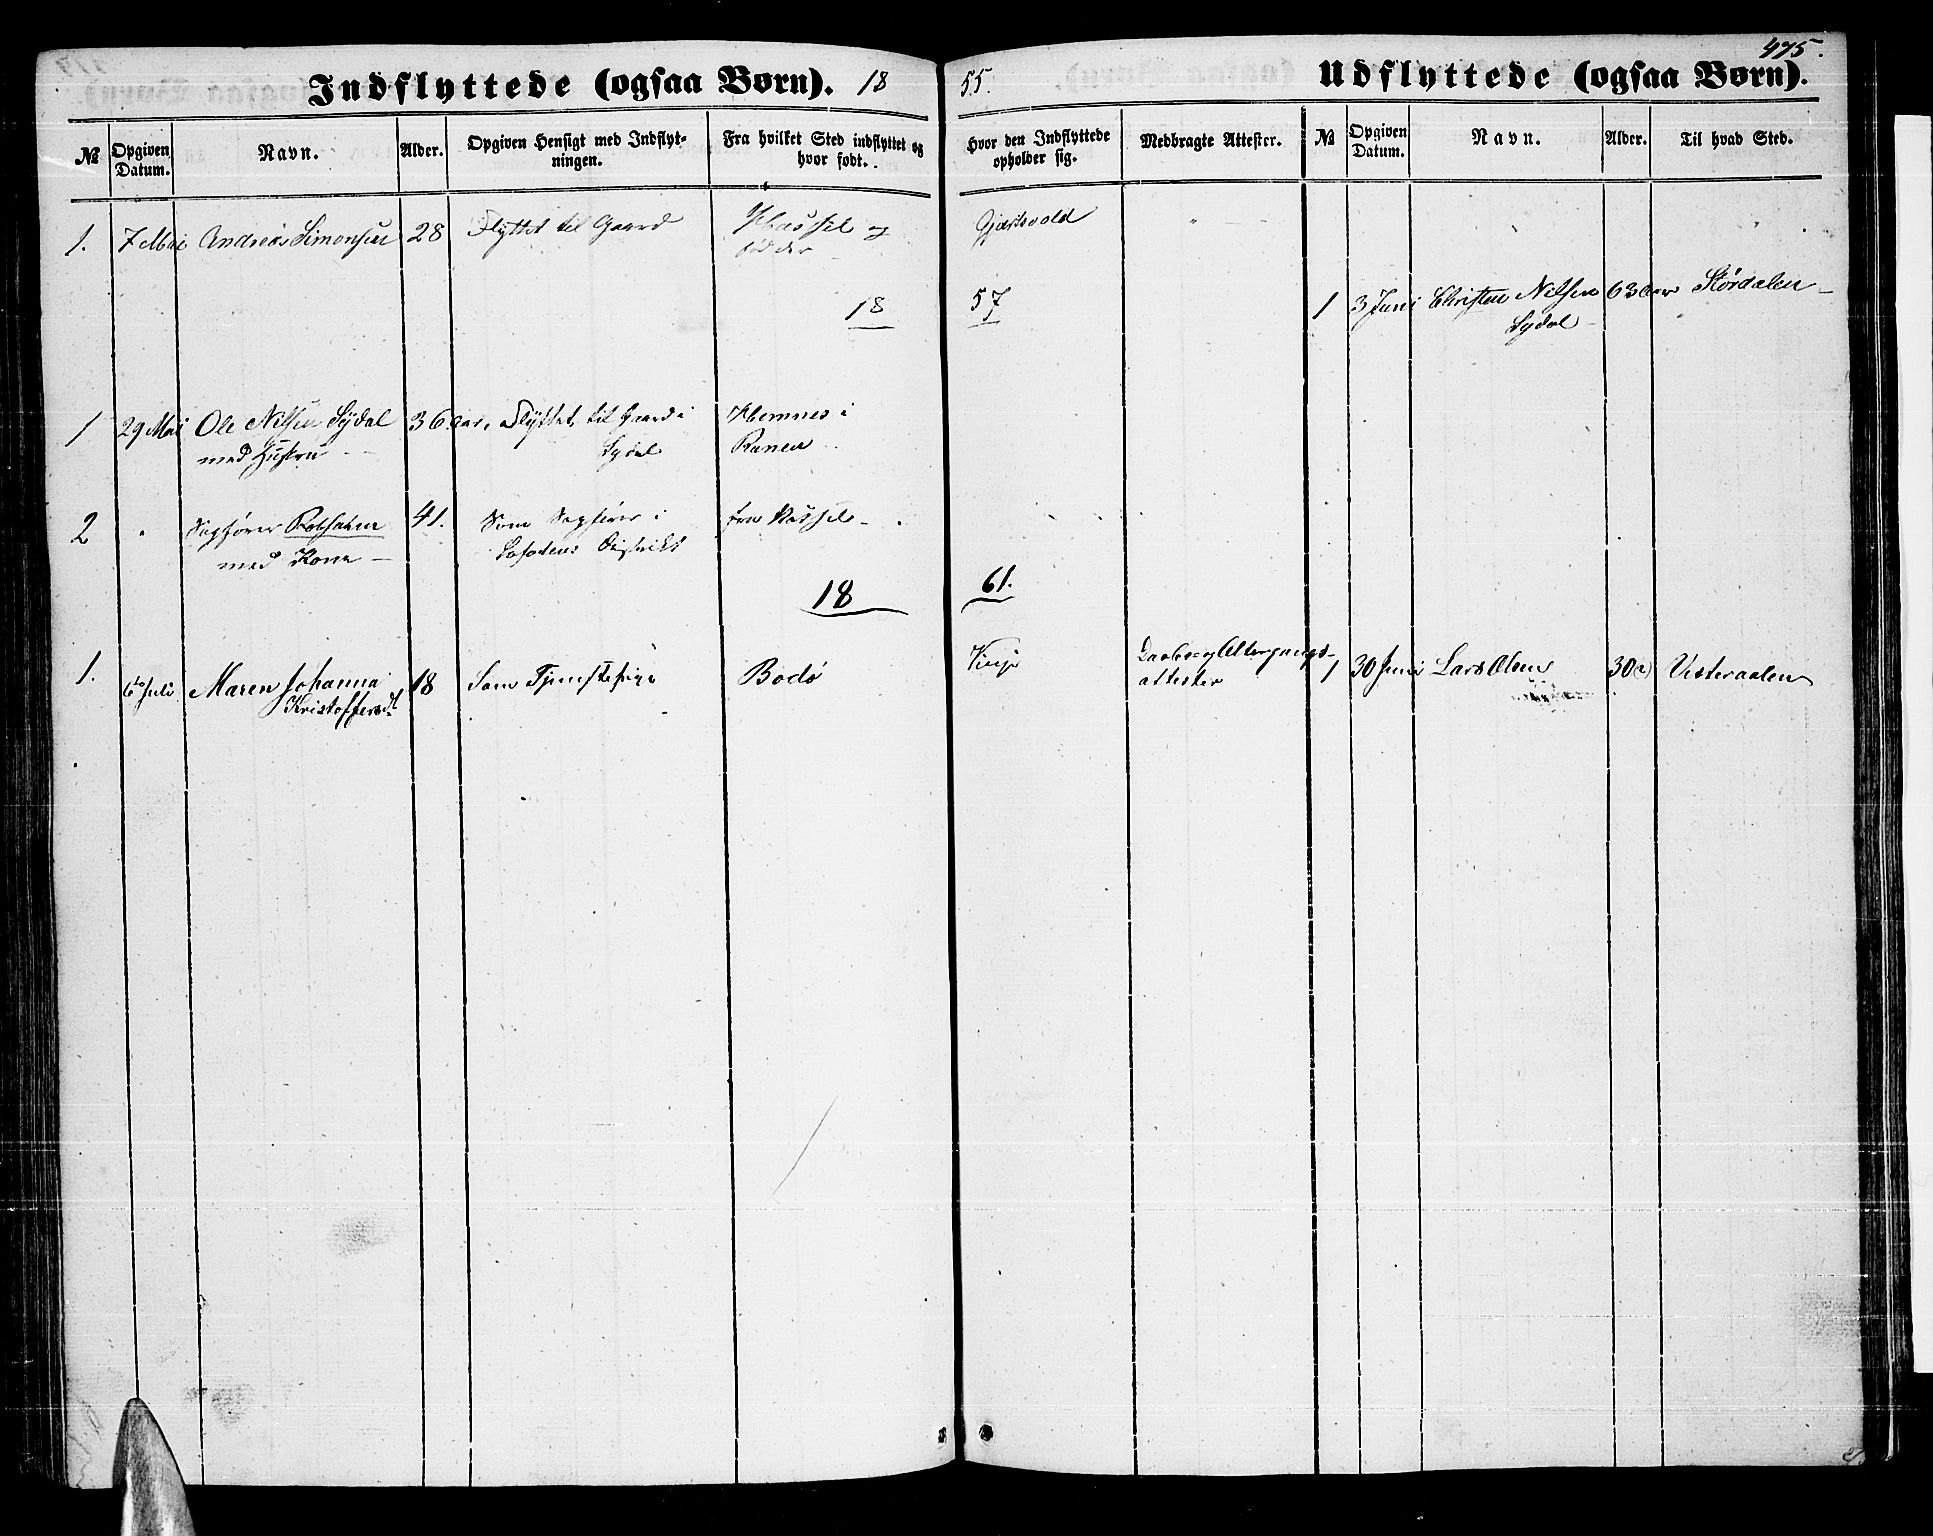 475.
Indflyttede (ogsaa Børn). 18 55. Udflyttede (ogsaa Børn).
№ Opgiven Datum. Navn. Alder. Opgiven Hensigt med Indflytningen. Fra hvilket Sted indflyttet og hvor født. Hvor den Indflyttede opholder sig. Medbragte Attester. № Opgiven Datum. Navn. Alder. Til hvad Sted.
1. 7 Mai Andreas Simonsen 28 Flyttet til Gaard Hassel og Gjerstvold
fød der
18 57 1 3 Juni Christen Nilsen 63 aar Stördalen
Sydal
1 29 Mai Ole Nilsen Sydal 36 aar. Flyttet til Gaard i Hemnes i
med Hustru Sydal Ranen
2 Sagförer 41. Som Sagförer i fra Hassel
med Kone Lofotens Distrikt
18 61.
1. 6te Juli Maren Johanna 18 Som Tjenestepige Bodö Vinje Daabs og Altergangs- 1 30 Juni Lars Olsen 30 Vesteraalen
Kristoffersdt attester